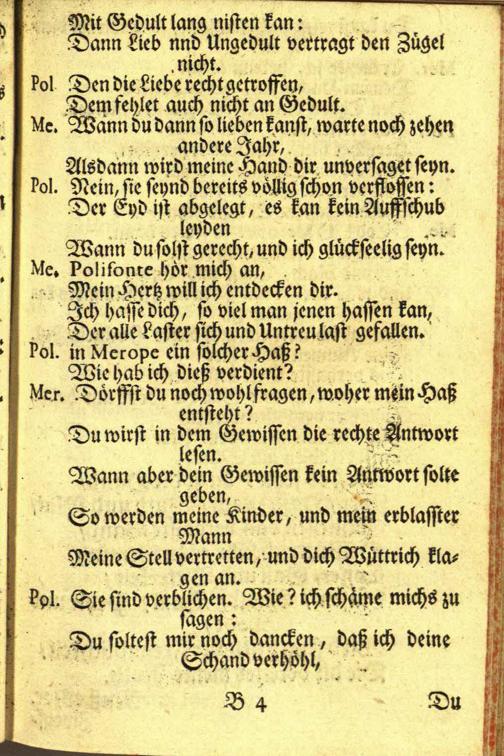 Mit Gedult lang nisten kan:
Dann Lieb nnd Ungedult vertragt den Zügel
nicht.
Pol Den die Liebe recht getroffen,
Dem fehlet auch nicht an Gedult.
Me. Wann du dann so lieben kanst, warte noch zehen
andere Jahr,
Alsdann wird meine Hand dir unversaget seyn.
Pol. Nein, sie seynd bereits völlig schon verflossen:
Der Eyd ist abgelegt, es kan kein Auffschub
leyden
Wann du solst gerecht, und ich glückseelig seyn.
Me. Polifonte hör mich an,
Mein Hertz will ich entdecken dir.
Ich hasse dich, so viel man jenen hassen kan,
Der alle Laster sich und Untreu last gefallen.
Pol. in Merope ein solcher Haß?
Wie hab ich dieß verdient?
Mer. Dörffst du noch wohl fragen, woher mein Haß
entsteht?
Du wirst in dem Gewissen die rechte Antwort
lesen.
Wann aber dein Gewissen kein Antwort solte
geben,
So werden meine Kinder, und mein erblasster
Mann
Meine Stell vertretten, und dich Wüttrich kla-
gen an.
Pol. Sie sind verblichen. Wie? ich schäme michs zu
sagen:
Du soltest mir noch dancken, daß ich deine
Schand verhöhl,
B 4 Du